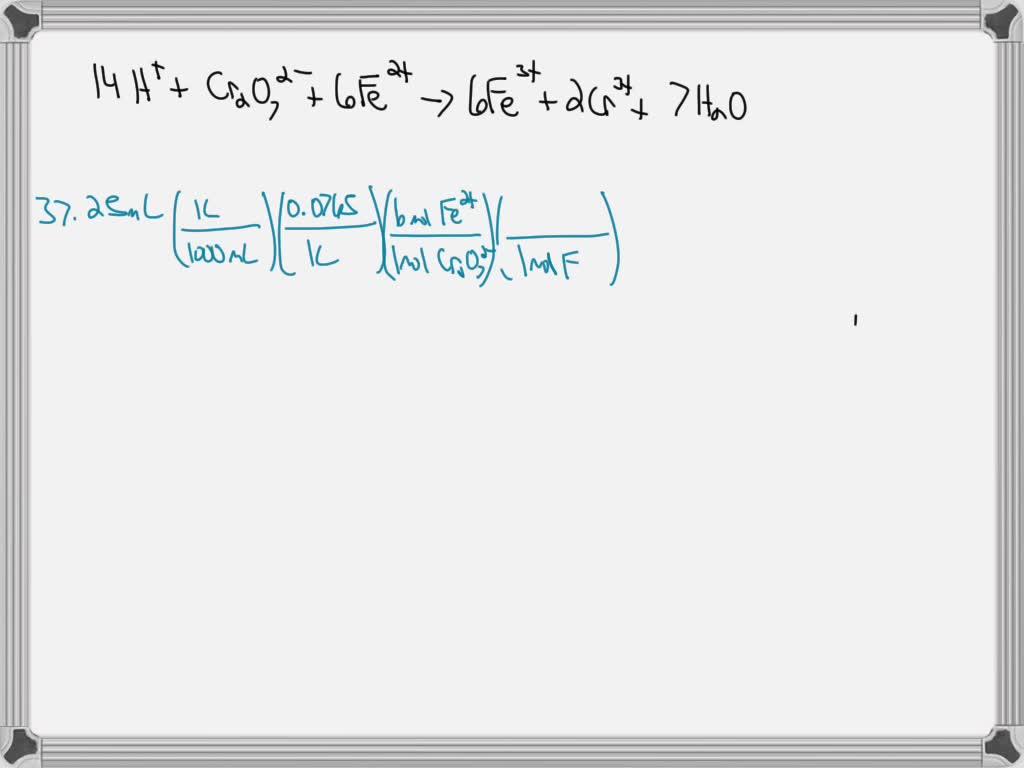 14 H⁺ + Cr₂O₇²⁻ + 6Fe²⁺ → 6Fe³⁺ + 2Cr³⁺ + 7H₂O
37.25mL (1L / 1000 mL)(0.0765 / 1L)(6 mol Fe²⁺ / 1 mol Cr₂O₇²⁻)( / 1 mol F )